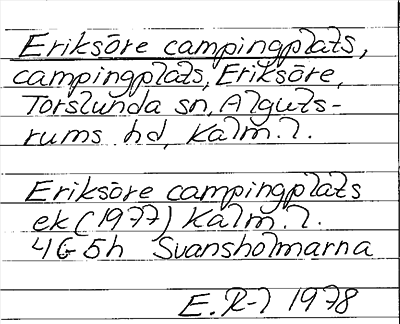 Eriksöre campingplats,
campingplats, Eriksöre,
Torslunda sn, Alguts-
rums hd, Kalm. l.
Eriksöre campingplats
ek (1977) Kalm. l.
4G5h Svansholmarna
E. R-l 1978